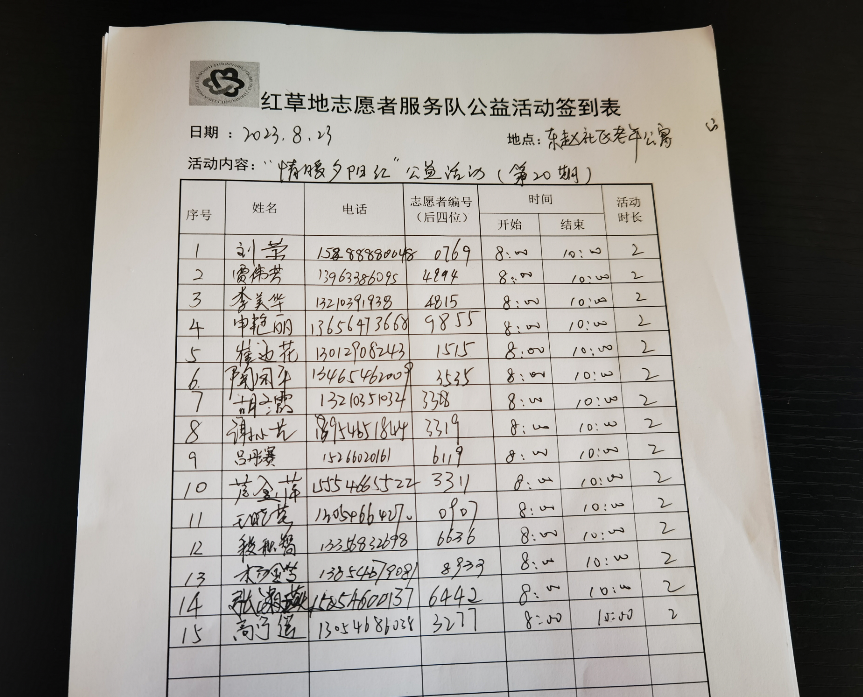 红草地志愿者服务队公益活动签到表
日期：2023.8.23 地点：东赵社区老年公寓
活动内容："情暖夕阳红"公益活动(第20期)
序号 姓名 电话 志愿者编号(后四位) 时间 活动时长
开始 结束
1 刘荣 0769 8:00 10:00 2
2 贾伟芳 13963386095 4894 8:00 10:00 2
3 李美华 13210391938 4815 8:00 10:00 2
4 申艳丽 13656473668 9855 8:00 10:00 2
5 13012908243 1515 8:00 10:00 2
6 13465462009 3535 8:00 10:00 2
7 胡霞 13210351032 3318 8:00 10:00 2
8 18954651844 3319 8:00 10:00 2
9 吕彤赛 15266020161 6119 8:00 10:00 2
10 15554665522 3311 8:00 10:00 2
11 王晓燕 0907 8:00 10:00 2
12 13356832698 6636 8:00 10:00 2
13 13854679081 8933 8:00 10:00 2
14 15854600137 6442 8:00 10:00 2
15 13054686038 3277 8:00 10:00 2